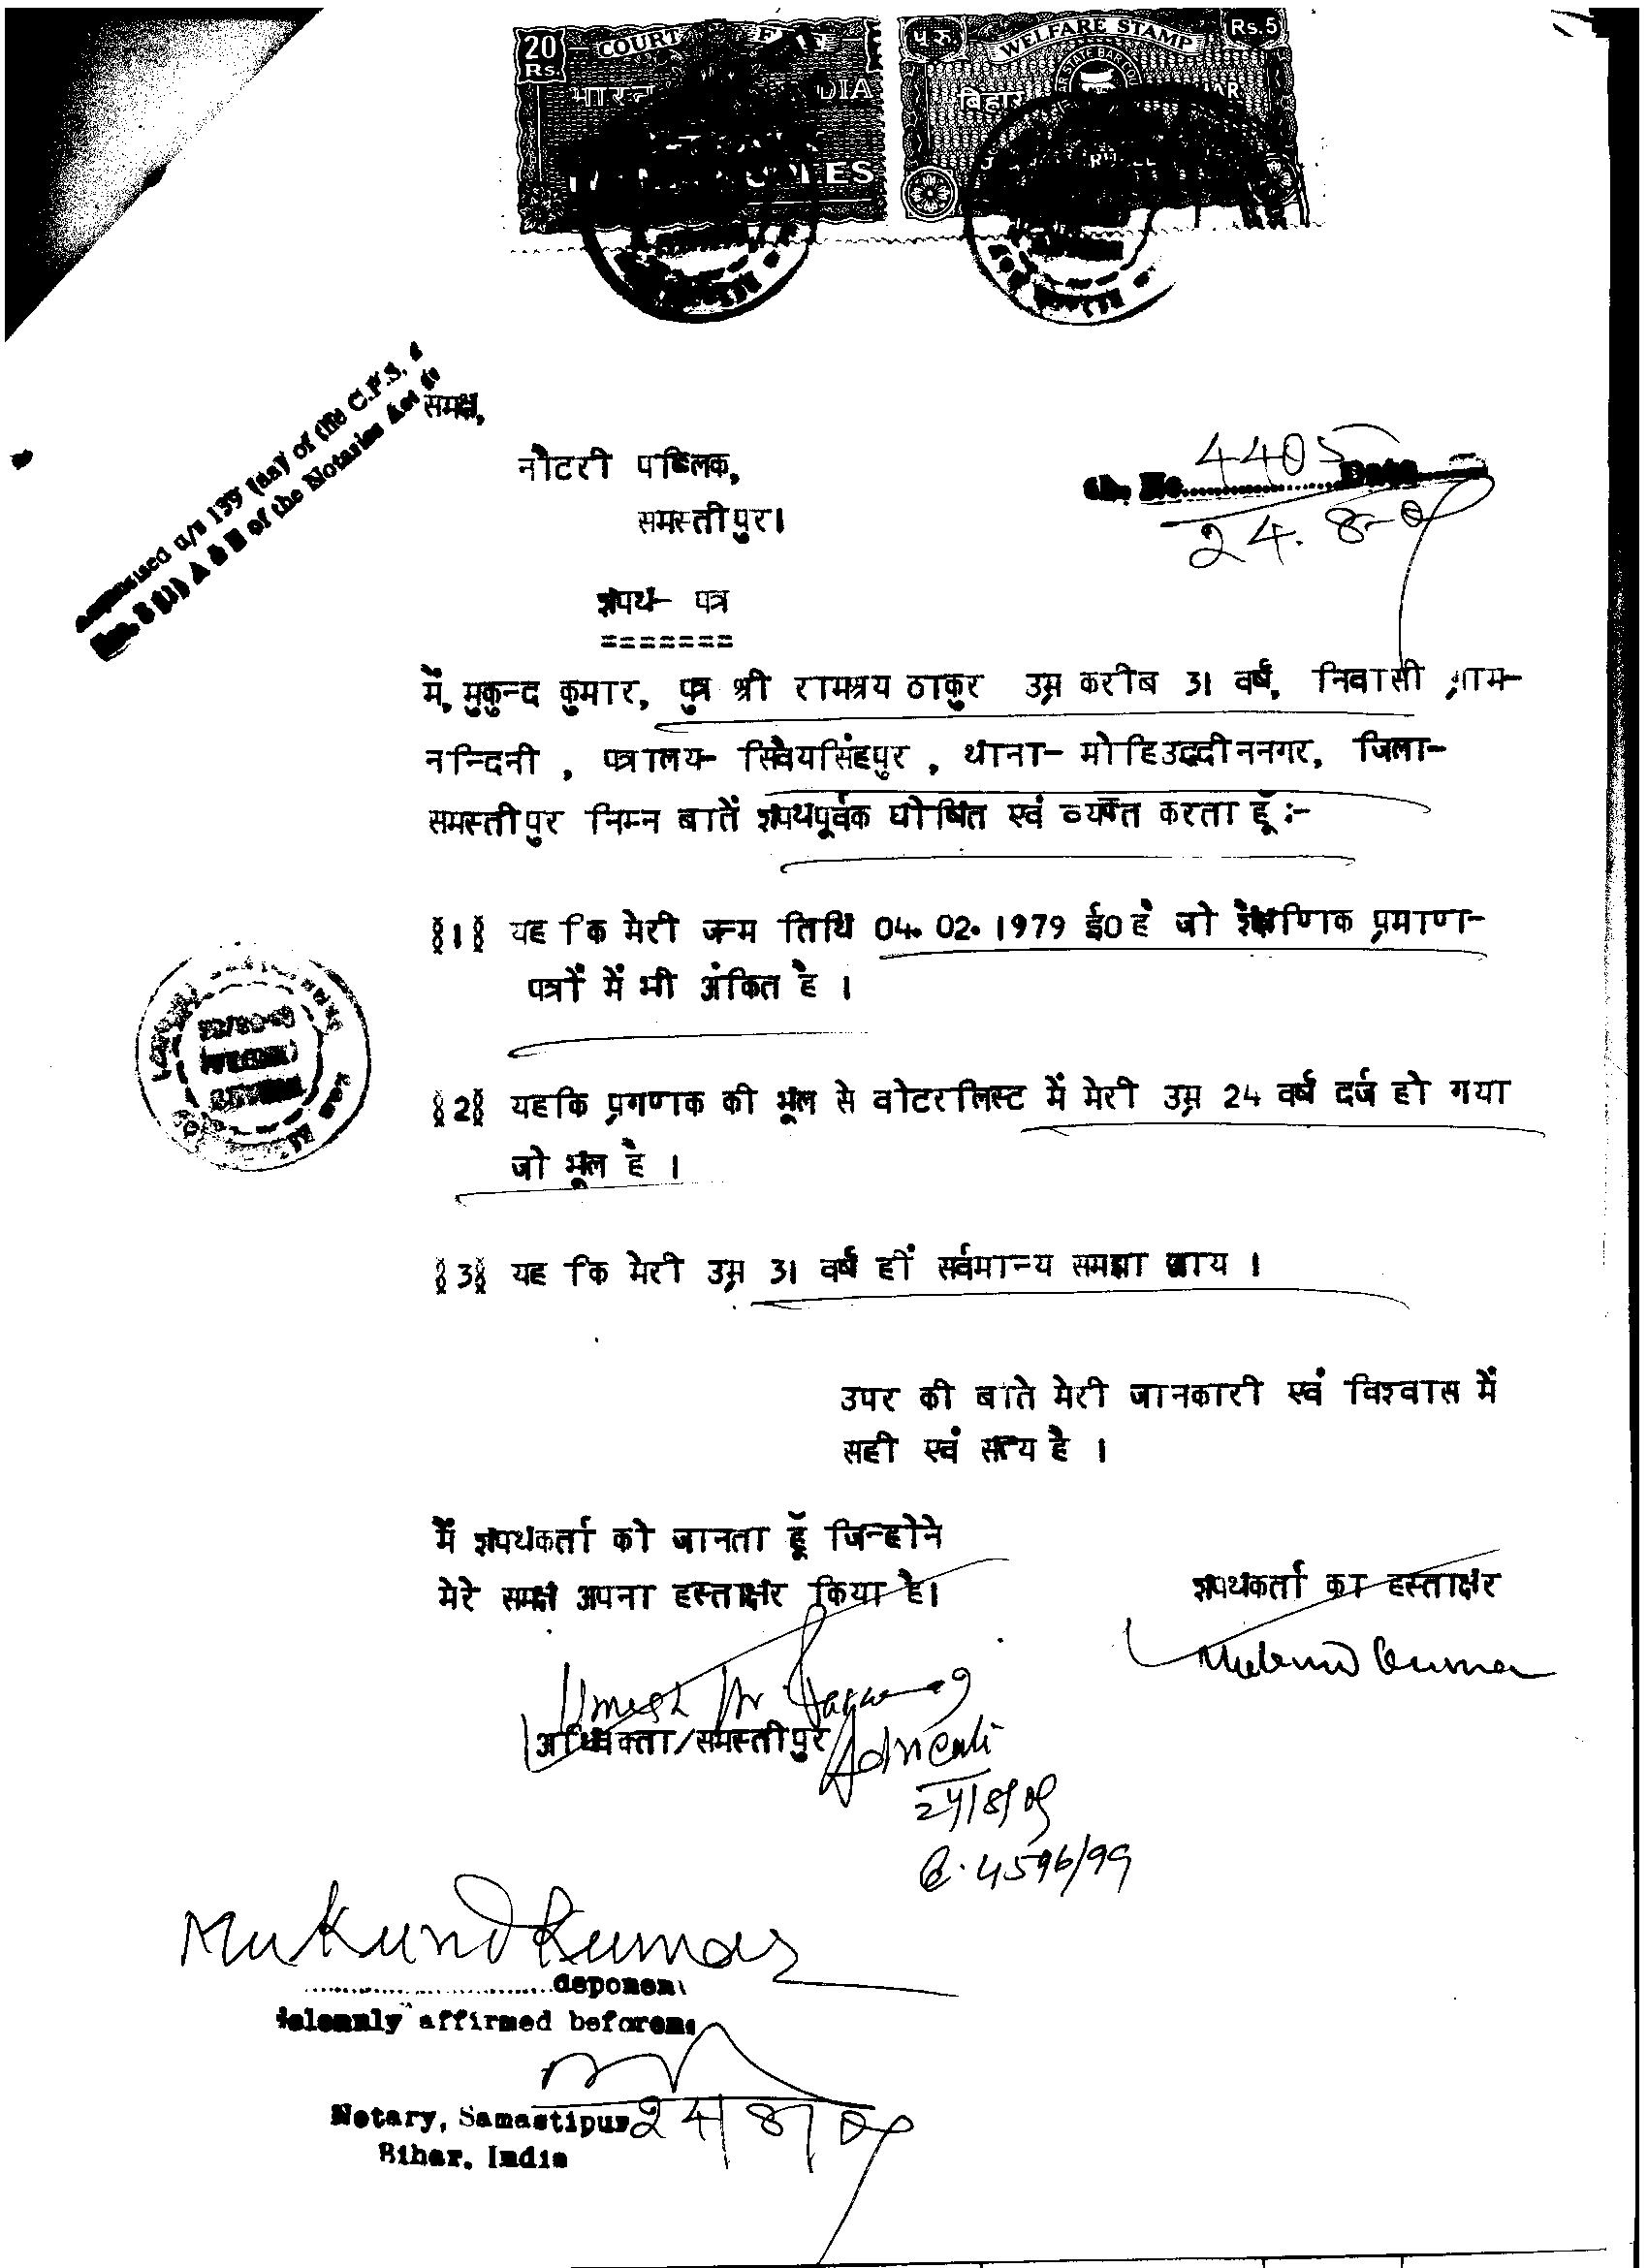 20 COURT FEE
Rs.
भारत INDIA
RUPEES
प.रु. WELFARE STAMP Rs.5
बिहार
u/s 139 (aa) of the C.P.S.
A & B of the Notaries Act
समक्ष,
नोटरी पब्लिक,
समस्तीपुर।
No. 4405 Date
24.8-09
शपथ- पत्र
=======
में, मुकुन्द कुमार, पुत्र श्री रामश्रय ठाकुर उम्र करीब 31 वर्ष, निवासी ग्राम-
नन्दिनी , पत्रालय- सिवैयसिंहपुर , थाना- मोहिउद्दीननगर, जिला-
समस्तीपुर निम्न बातें शपथपूर्वक घोषित एवं व्यक्त करता हूँ :-
§1§ यह कि मेरी जन्म तिथि 04. 02. 1979 ई0 है जो शैक्षणिक प्रमाण-
पत्रों में भी अंकित है ।
§2§ यहकि प्रगणक की भूल से वोटरलिस्ट में मेरी उम्र 24 वर्ष दर्ज हो गया
जो भूल है ।
§3§ यह कि मेरी उम्र 31 वर्ष हीं सर्वमान्य समझा जाय ।
उपर की बाते मेरी जानकारी एवं विश्वास में
सही एवं सत्य है ।
मैं शपथकर्ता को जानता हूँ जिन्होने
मेरे समक्ष अपना हस्ताक्षर किया है।
शपथकर्ता का हस्ताक्षर
Mukund Kumar
Umesh Kr
अधिवक्ता/समस्तीपुर
Advocate
24/8/09
E. 4596/99
Mukund Kumar
deponent
Solemnly affirmed before me
Notary, Samastipur 24/8/09
Bihar, India